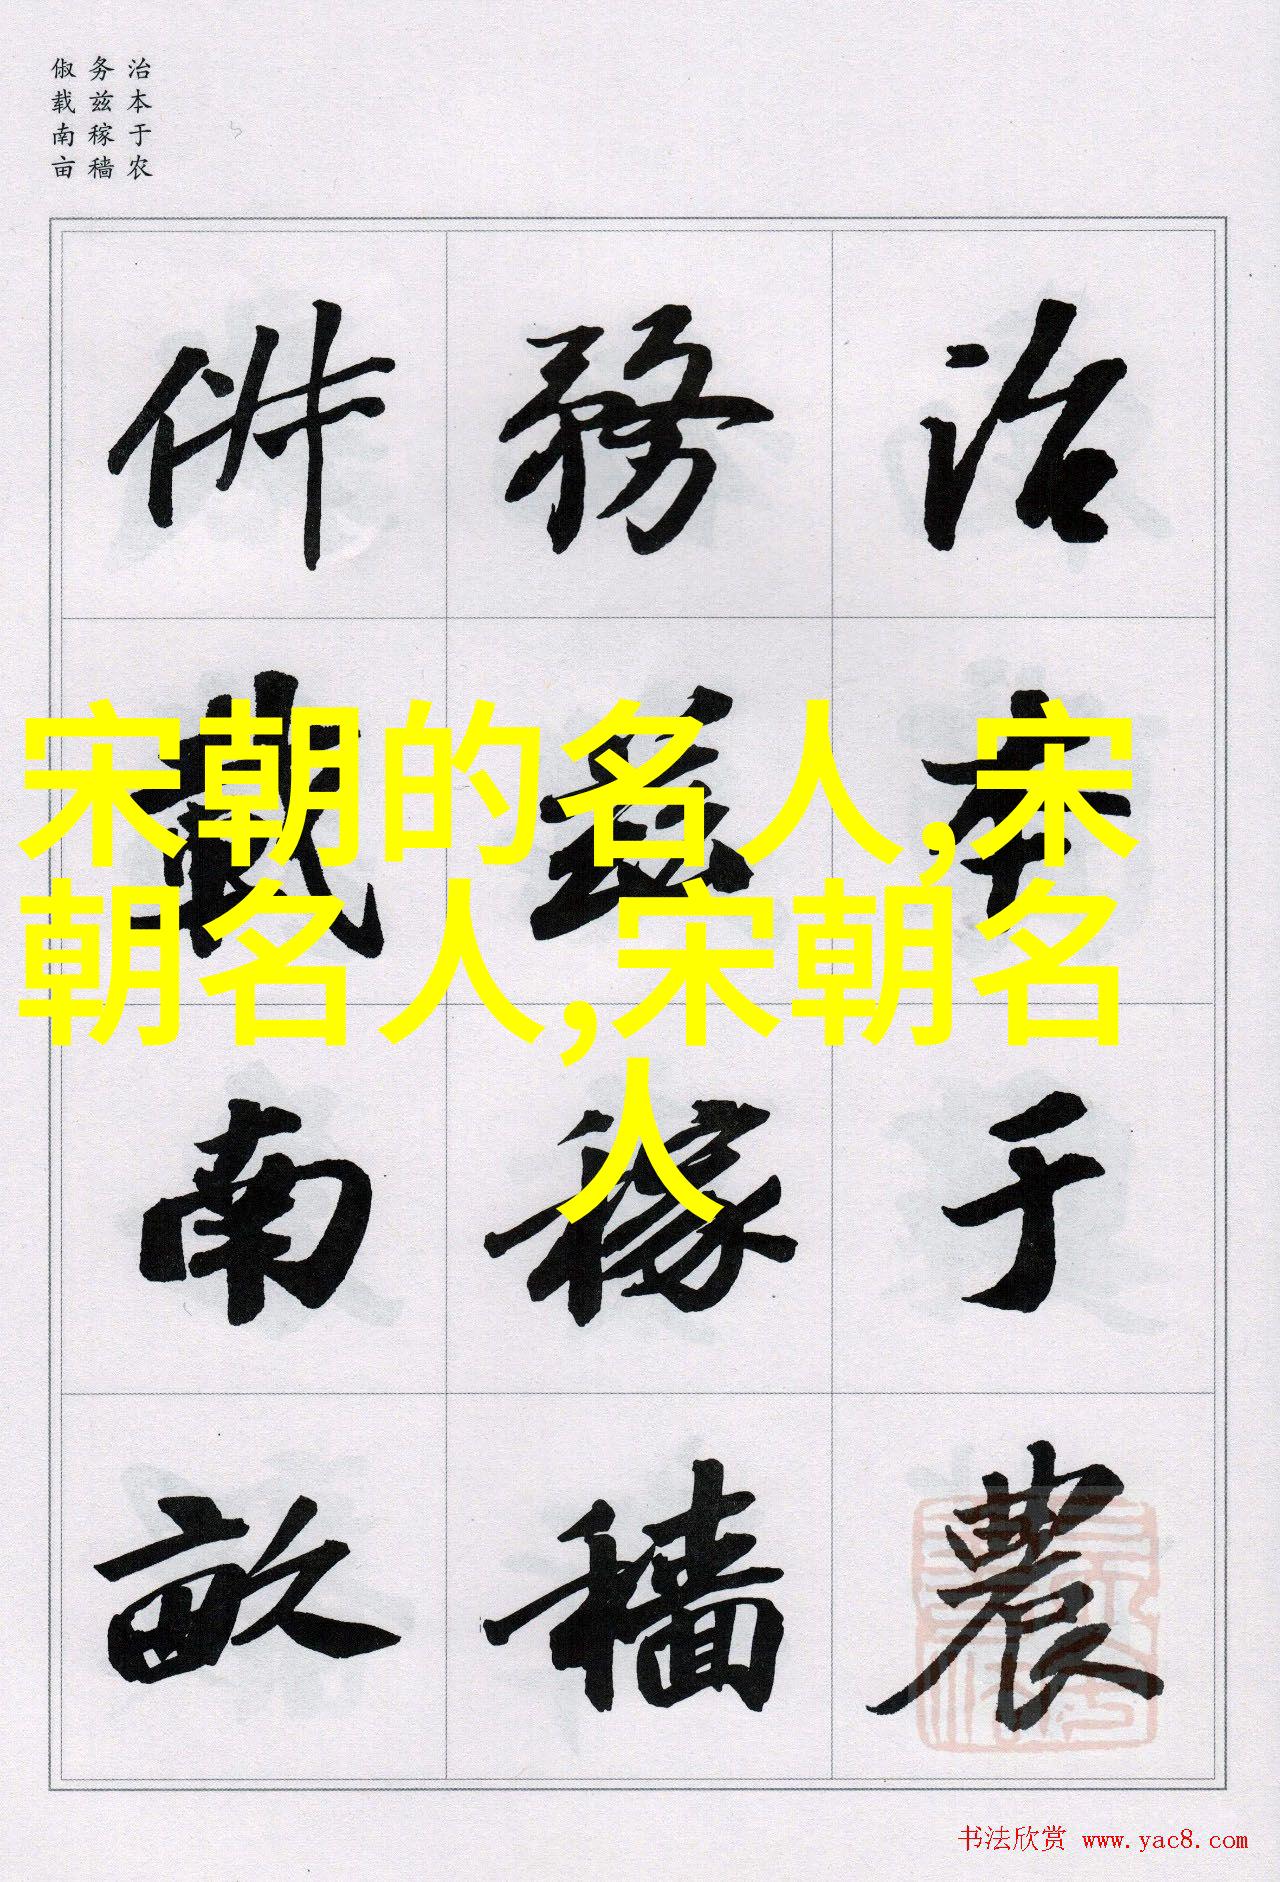 治本于农
务兹稼穑
俶载南亩
治本于農
務茲稼穡
俶載南畝
宋朝的名人,宋
朝名人,宋朝名
人
书法欣赏 www.yac8.com